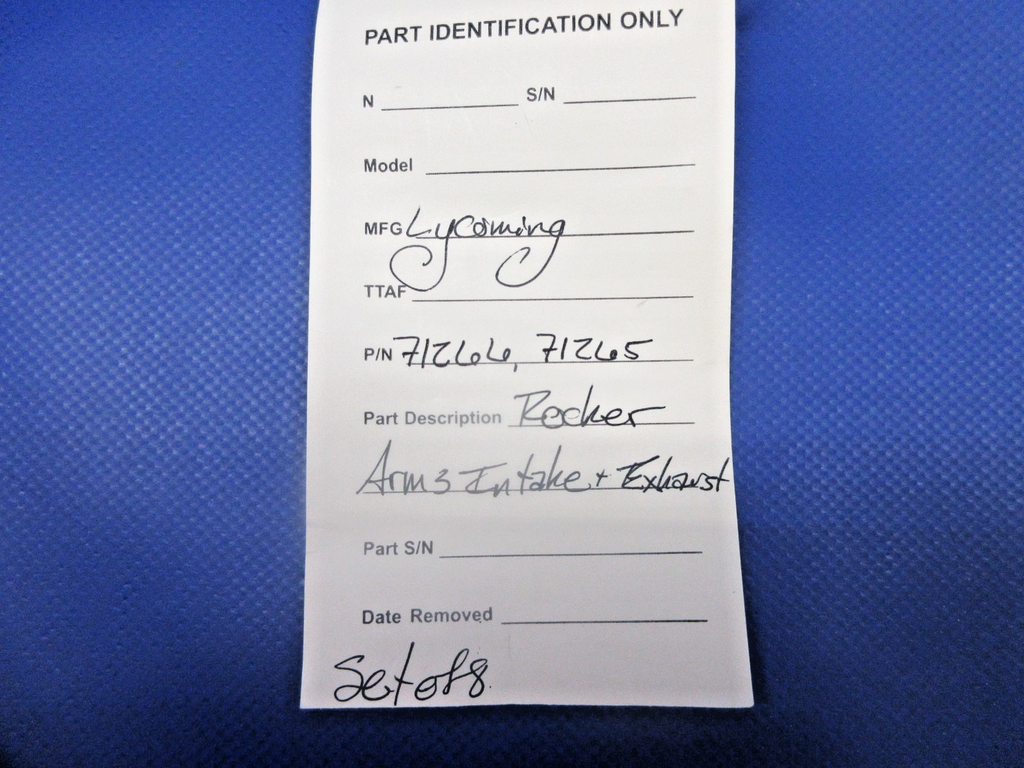 PART IDENTIFICATION ONLY
N S/N
Model
MFG Lycoming
TTAF
P/N 71266, 71265
Part Description Rocker
Arms Intake + Exhaust
Part S/N
Date Removed
Set of 8